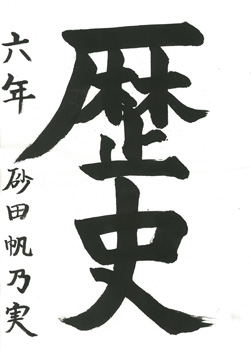 歴史
六年 砂田帆乃実